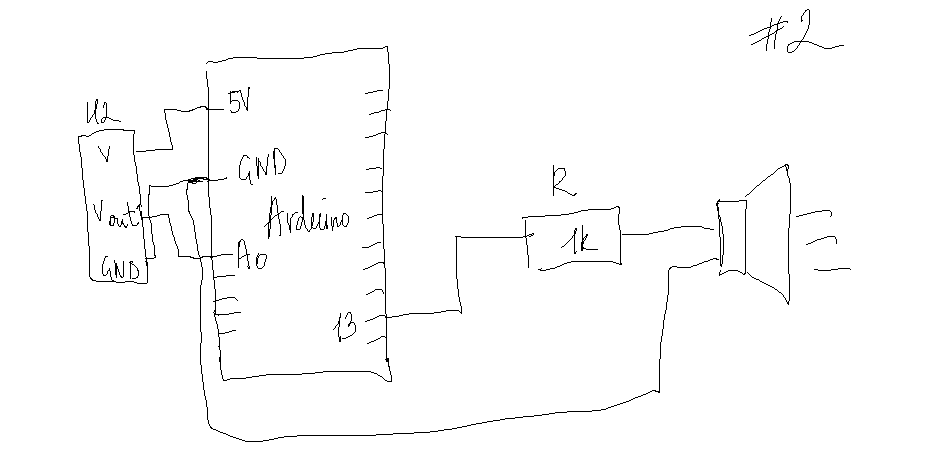 #2
U2
V
Vout
GND
5V
GND
Arduino
A0
13
R
1k